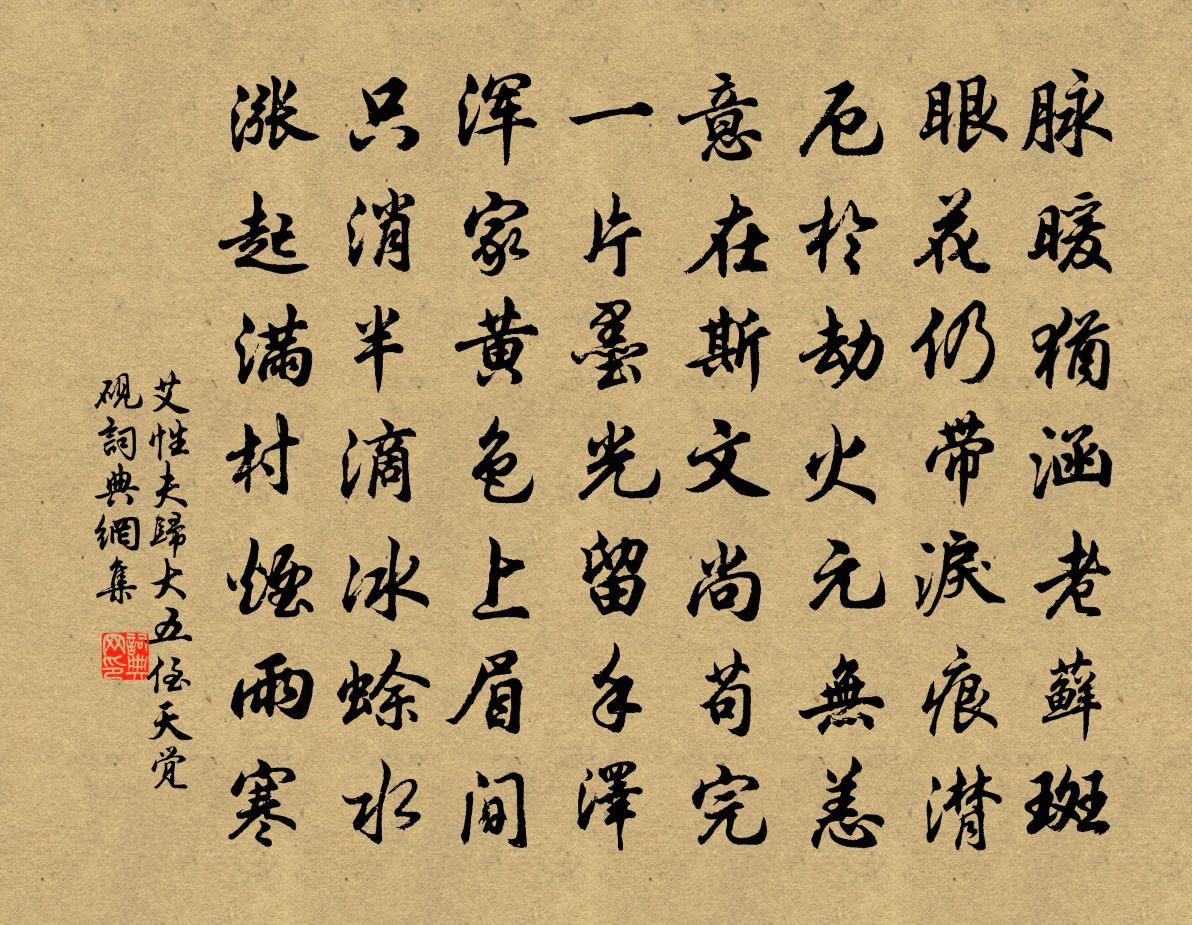 脉暖猶涵老蘚斑
眼花仍带淚痕潸
厄於劫火元無恙
意在斯文尚苟完
一片墨光留手澤
浑家黄色上眉間
只消半滴冰蜍水
漲起满村煙雨寒
艾性夫歸大五侄天觉
硯詞典網集
詞典网印